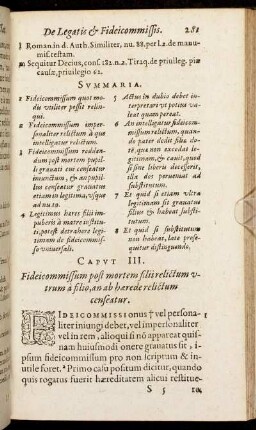 De Legatis & Fideicommissis. 281
l Roman. in d. Auth. Similiter, nu. 88. per l. 2. de manu-
miss. testam.
m Sequitur Decius, cons. 182. n. 2. Tiraq. de priuileg. piæ
causæ, priuilegio 62.
SVMMARIA.
1 Fideicommissum quot mo-
dis vtiliter possit relin-
qui.
2 Fideicommissum imper-
sonaliter relictum à quo
intelligatur relictum.
3 Fideicommissum reddendum
post mortem
pupilli grauati
etiam legitima, vsque
ad nu. 10.
4 Legitimus hæres filii im-
puberis à matre insti-
tuti, potest detrahere legi-
timam de fideicommis-
so vniuersali.
5 Actus in dubio debet in-
terpretari vt potius va-
leat quam pereat.
6 An intelligatur fideicom-
missum relictum, quan-
do pater dedit filia do-
te, qua non excedat le-
gitimam, & cauit, quod
si sine liberis decesserit,
illa dos perueniat ad
substitutum.
7 Et quid si etiam vltra
legitimam sit grauatus
filius & habeat substi-
tutum.
8 Et quid si substitutum
non habeat, late prose-
quitur distinguendo.
CAPVT III.
Fideicommissum post mortem filii relictum v-
trum à filio, an ab hærede relictum
censeatur.
FIDEICOMMISSI onus † vel persona-
liter iniungi debet, vel impersonaliter
vel in rem, alioqui si nõ appareat quis-
nam huiusmodi onere grauatus sit, i-
psum fideicommissum pro non scriptum & in-
utile foret. a Primo casu positum dicitur, quando
quis rogatus fuerit hæreditatem alicui restitue-
S 5 re,